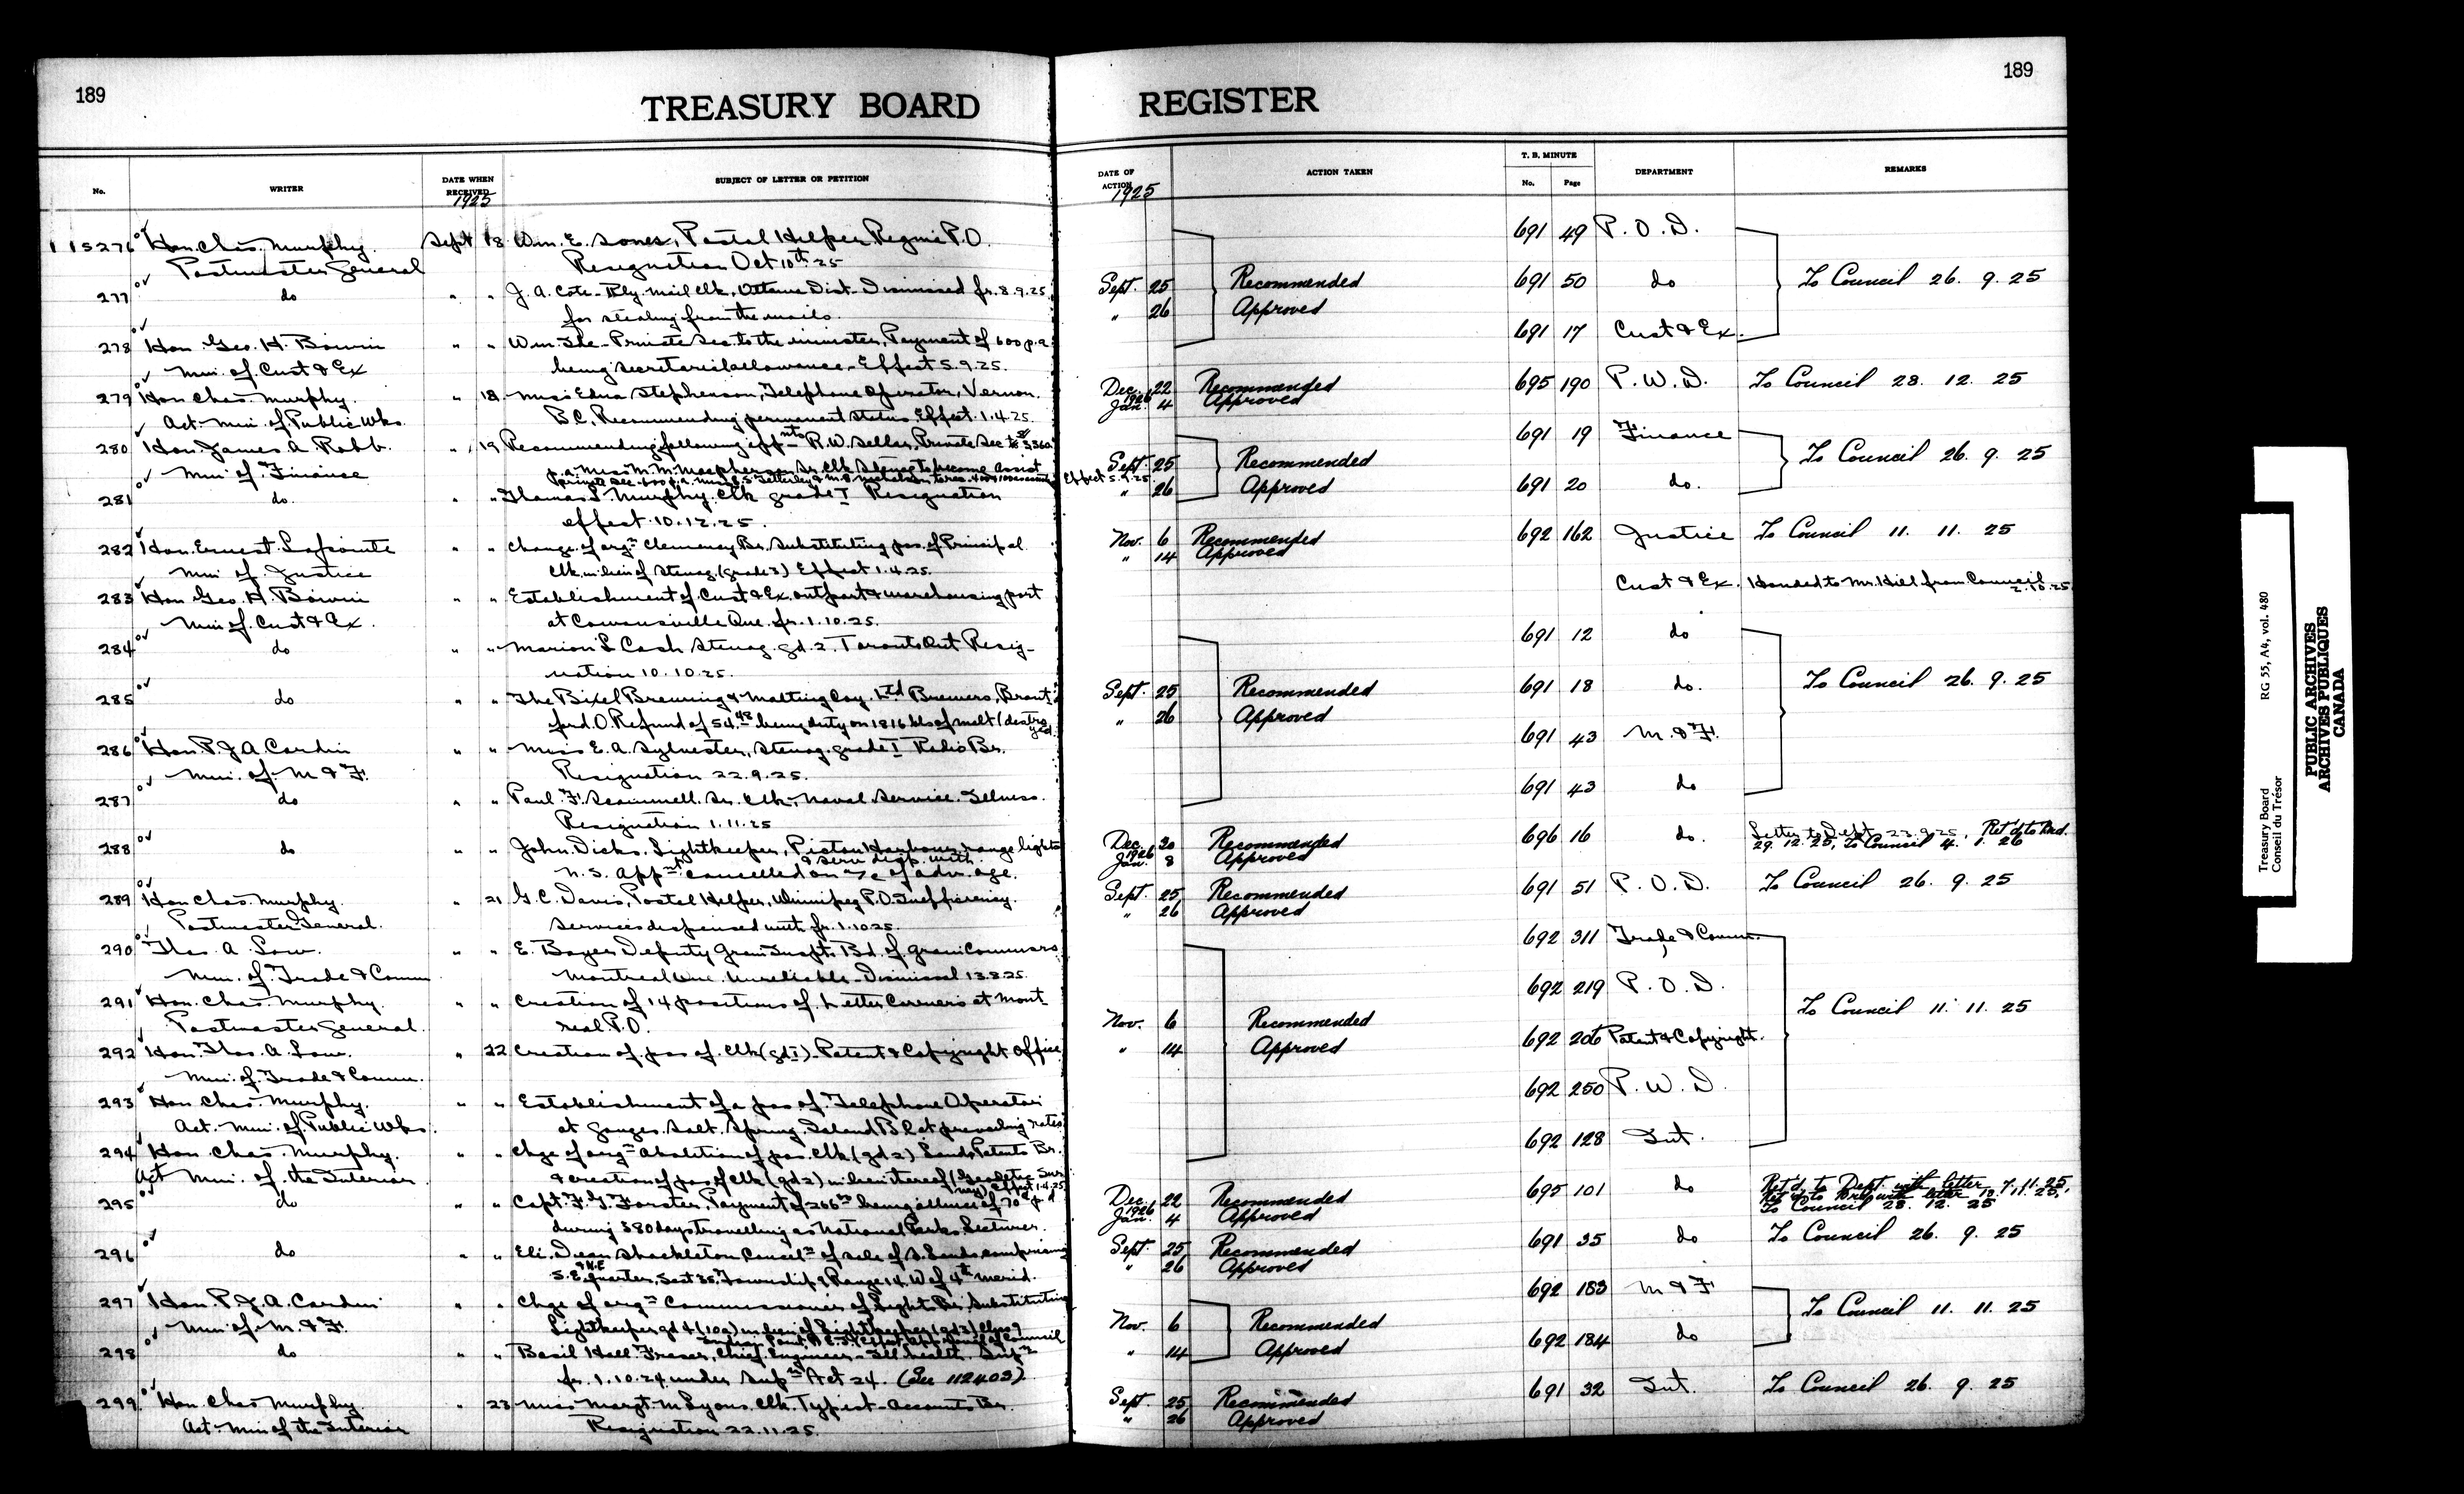 189
TREASURY BOARD
No.
WRITER
DATE WHEN RECEIVED
1925
SUBJECT OF LETTER OR PETITION
115276 Hon. Chas. Murphy. Sept 18 Wm. E. Jones, Postal Helper Regina P.O.
Postmaster General Resignation Oct 10th 25
277 do " " J. A. Cote - Rly. Mail Clk. Ottawa Dist. Dismissed fr. 8.9.25
for stealing from the mails.
278 Hon. Geo. H. Boivin " " Wm. Ide - Private Sec. to the minister, Payment of 600 p.a.
Min. of Cust & Ex being secretarial allowance - Effect 5.9.25.
279 Hon Chas. Murphy. " 18 Miss Edna Stephenson, Telephone Operator, Vernon.
Act. Min. of Public Wks. B.C. Recommending permanent status Effect. 1.4.25.
280 Hon. James A. Robb. " 19 Recommending following appnts R. W. Sellar, Private Sec to 3360
Min. of Finance p.a. Miss M. M. Macpherson Sr. Clk Stenog to become Assist
private sec. 600 p.a. Effect 5.9.25
281 do. " " Thomas S. Murphy. Clk grade I Resignation
effect 10.12.25.
282 Hon. Ernest Lapointe " " Change of orgn Clemency Br. Substituting pos. of Principal
Min. of Justice Clk. in lieu of Stenog. (grade 3) Effect 1.4.25.
283 Hon Geo. H. Boivin " " Establishment of Cust & Ex. outport & warehousing port
Min of Cust & Ex. at Cowansville Que. fr. 1.10.25.
284 do " " Marion L Cash Stenog. gd. 2. Toronto Ont Resig-
nation 10.10.25.
285 do " " The Bixel Brewing & Malting Coy. Ltd Brewers, Brant-
ford. O. Refund of 54.48 being duty on 1816 lbs of malt (destroyed.
286 Hon. P. J. A. Cardin " " Miss E. A. Sylvester, Stenog. grade I Radio Br.
Min. of M & F. Resignation 22.9.25.
287 do " " Paul F. Scammell. Sr. Clk. Naval Service. Illness.
Resignation 1.11.25
288 do " " John Dicks, Lightkeeper, Pictou Harbour range lights
& serv disp. with.
N.S. Appnt cancelled on a/c of adv. age.
289 Hon Chas. Murphy. " 21 G. C. Davis, Postal Helper, Winnipeg P.O. Inefficiency.
Postmaster General. Services dispensed with fr. 1.10.25.
290 Thos. A. Low. " " E. Boyer Deputy Grain Inspt. Bd. of Grain Commsrs
Min. of Trade & Comm Montreal Que. Unreliable - Dismissal 13.8.25.
291 Hon. Chas. Murphy. " " Creation of 14 positions of Letter Carriers at Mont-
Postmaster General. real P.O.
292 Hon. Thos. A. Low. " 22 Creation of pos of Clk (gd I) - Patent & Copyright Office
Min. of Trade & Comm.
293 Hon. Chas. Murphy. " " Establishment of a pos. of Telephone Operator
Act. Min. of Public Wks. at Ganges. Salt. Spring. Island B C at prevailing rates
294 Hon. Chas. Murphy. " " Chge of orgn Abolition of pos. Clk (gd 2) Lands Patents Br.
Act Min. of the Interior & creation of pos of Clk (gd 2) in lieu thereof (Geodetic Survey) Effect 1.4.25
295 do " " Capt. F. G. Forster, Payment of 266.00 being allnce of 70¢ p. d
during 380 days travelling as National Parks Lecturer.
296 do " " Eli. Dean Shackleton, Cancelln of sale of S. Lands, comprising
& N.E
S.E. quarter, Sect 35, Township 9 Range 14. W of 4th merid.
297 Hon. P. J. A. Cardin " " Chge of orgn Commissioner of Lights Br. Substituting
Min of M. & F. Lightkeeper gd 4 (10a) in lieu of Lightkeeper (gd 3) Class 9
298 do " " Basil Hall Fraser, Chief Engineer - Ill health. Supn
fr. 1.10.24 under Supn Act 24. (See 112403)
299 Hon. Chas Murphy. " 23 Miss Margt. M Lyons. Clk. Typist - Accounts Br.
Act. Min of the Interior Resignation 22.11.25.
189
REGISTER
DATE OF ACTION
1925
ACTION TAKEN
T. B. MINUTE
No.
Page
DEPARTMENT
REMARKS
691 49 P. O. D.
Sept. 25 Recommended 691 50 do To Council 26. 9. 25
" 26 Approved
691 17 Cust & Ex.
Dec. 22 Recommended 695 190 P. W. D. To Council 28. 12. 25
1926
Jan. 4 Approved
691 19 Finance
Sept. 25 Recommended To Council 26. 9. 25
" 26 Approved 691 20 do.
Nov. 6 Recommended 692 162 Justice To Council 11. 11. 25
" 14 Approved
Cust & Ex. Handed to Mr. Hill from Council 2.10.25
691 12 do
Sept. 25 Recommended 691 18 do. To Council 26. 9. 25
" 26 Approved
691 43 M. & F.
691 43 do
Dec. 30 Recommended 696 16 do. Letter to Dept. 23.9.25, Ret'd to
1926
Jan. 8 Approved 29. 12. 25, To Council 4. 1. 26
Sept. 25 Recommended 691 51 P. O. D. To Council 26. 9. 25
" 26 Approved
692 311 Trade & Comm.
692 219 P. O. D.
Nov. 6 Recommended To Council 11. 11. 25
692 206 Patent & Copyright.
" 14 Approved
692 250 P. W. D.
692 128 Int.
Dec. 22 Recommended 695 101 do Ret'd to Dept. with letter 7.11.25,
Ret'd to Dept with letter
1926
Jan. 4 Approved To Council 28. 12. 25
Sept. 25 Recommended 691 35 do To Council 26. 9. 25
" 26 Approved
692 183 M & F
Nov. 6 Recommended To Council 11. 11. 25
692 184 do
" 14 Approved
Sept. 25 Recommended 691 32 Int. To Council 26. 9. 25
" 26 Approved
Treasury Board RG 55, A4, vol. 480
Conseil du Trésor
PUBLIC ARCHIVES
ARCHIVES PUBLIQUES
CANADA